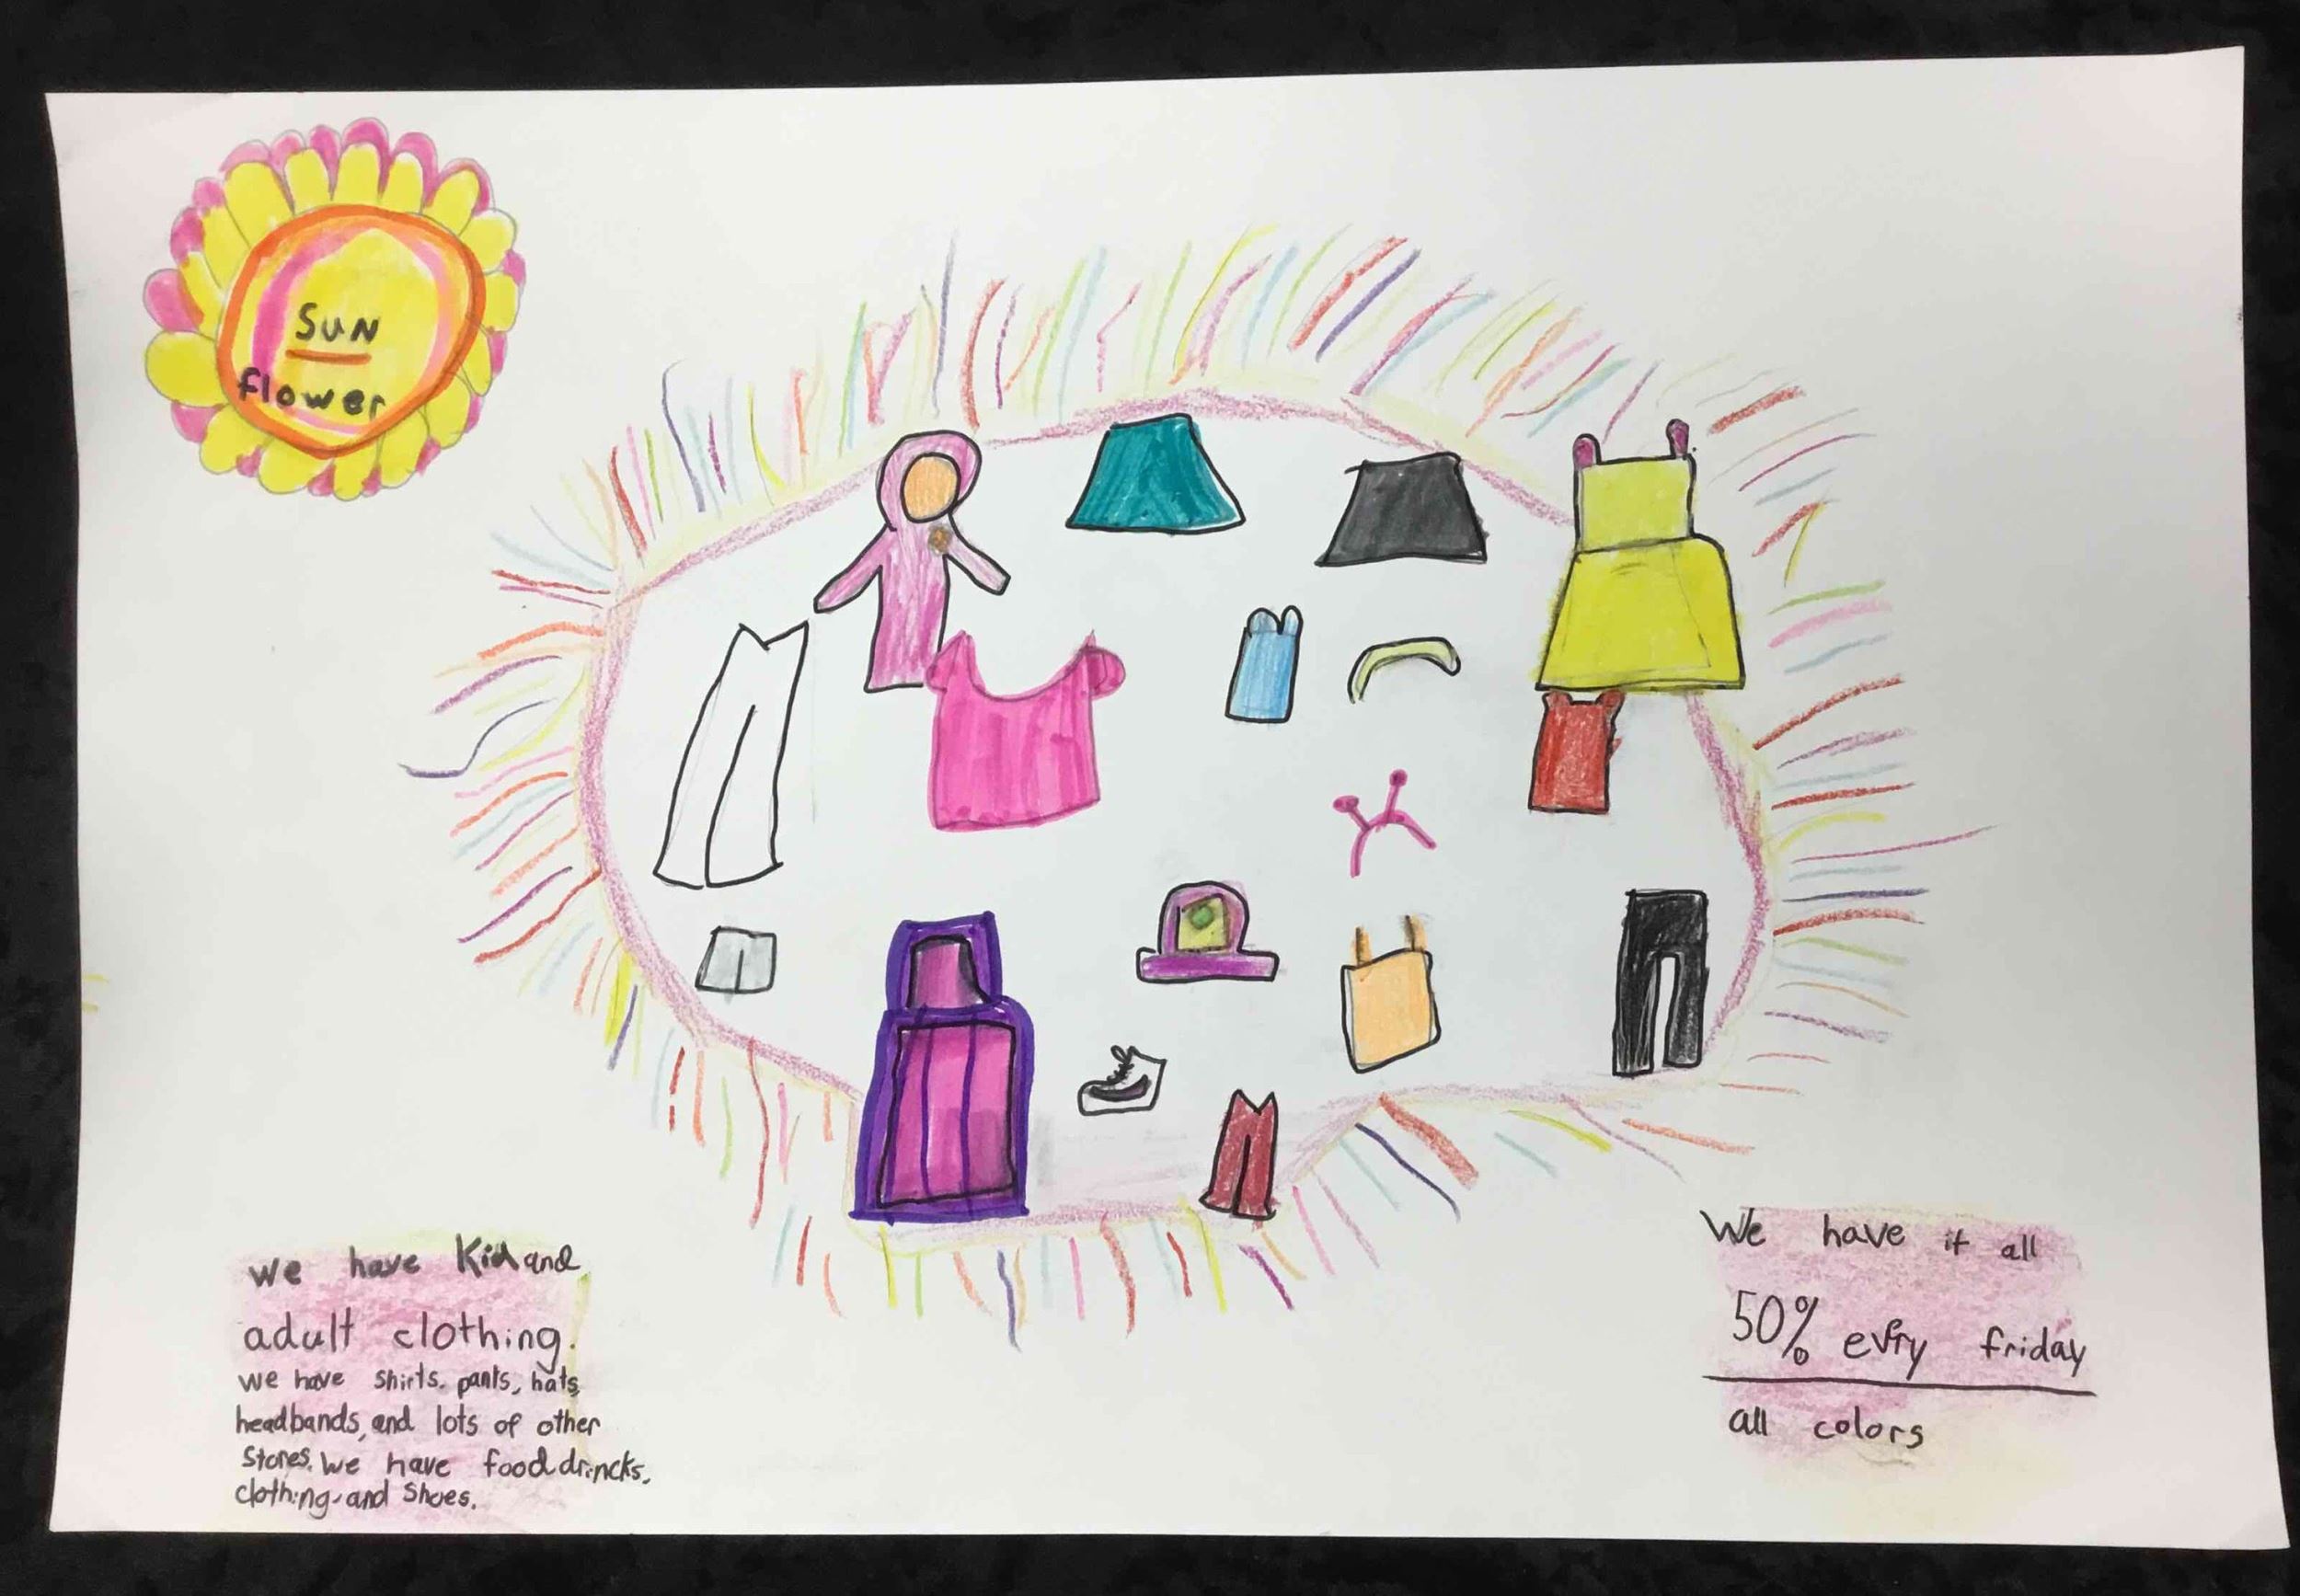 Sun
flower
we have Kid and
adult clothing.
we have shirts. pants, hats,
headbands, and lots of other
Stores. We have food drincks.
clothing, and Shoes.
We have it all
50% evry friday
all colors